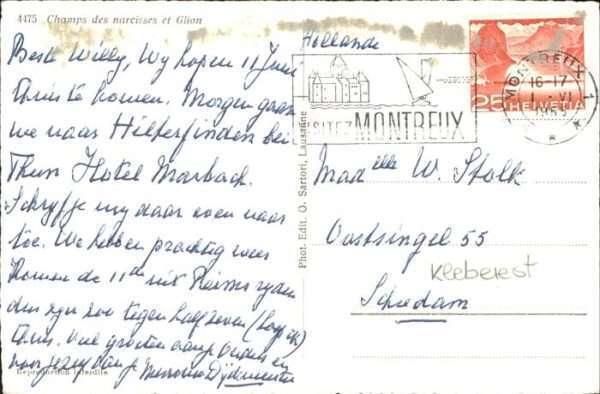 4475 Champs des narcisses et Glion
Beste Willy, Wy hopen 11 Juni
thuis te komen. Morgen gaan
we naar Hilterfinden bei
Thun Hotel Marbach.
Schryf je my daar even naar
toe. We hebben prachtig weer
Komen de 11de uit Reims ryden
dus zyn zoo tegen half zeven (hoop ik)
thuis. Veel groeten aan je ouders en
voor jezelf van je
Reproduction interdite
Phot. Edit. O. Sartori, Lausanne
Hollande
VISITEZ MONTREUX
MONTREUX 1
16-17
1.-VI
25 HELVETIA
Madelle W. Stolk
Oostsingel 55
Kleberest
Schiedam